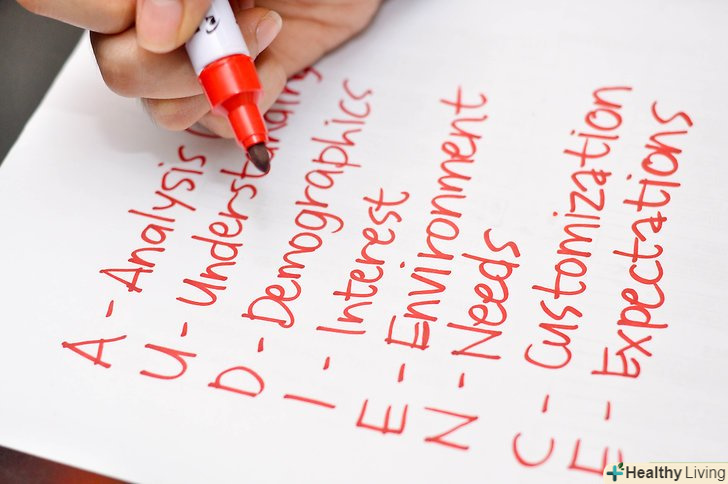 A - Analysis
U - Understanding
D - Demographics
I - Interest
E - Environment
N - Needs
C - Customization
E - Expectations
Healthy Living